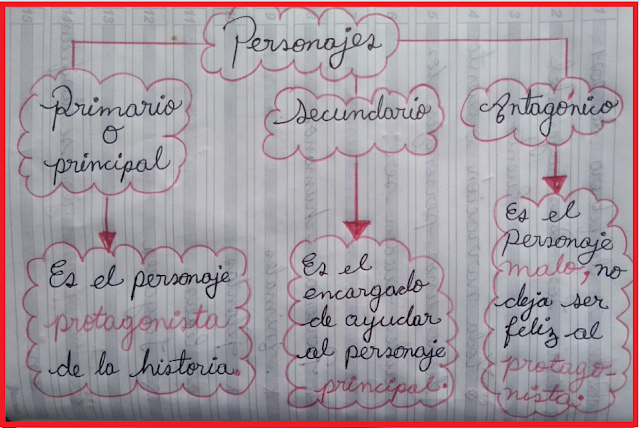 Personajes
Primario
o
principal
Es el personaje
protagonista
de la historia.
Secundario
Es el
encargado
de ayudar
al personaje
principal.
Antagónico
Es el
personaje
malo, no
deja ser
feliz al
protago-
nista.